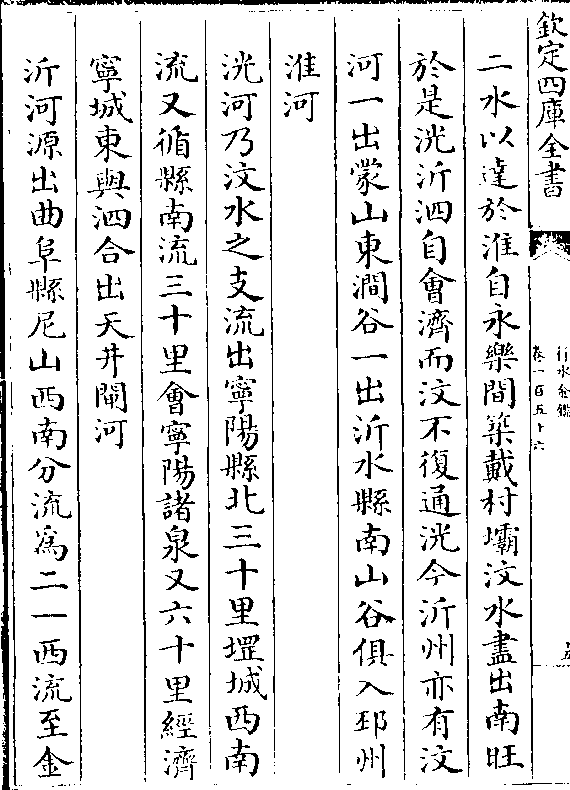 欽定四庫全書
行水金鑑
卷一百五十六
二水以達於淮自永樂間築戴村壩汶水盡出南旺
於是洸沂泗自會濟而汶不復通洸今沂州亦有汶
河一出蒙山東澗谷一出沂水縣南山谷俱入邳州
淮河
洸河乃汶水之支流出寧陽縣北三十里堽城西南
流又循縣南流三十里會寧陽諸泉又六十里經濟
寧城東與泗合出天井閘河
沂河源出曲阜縣尼山西南分流爲二一西流至金